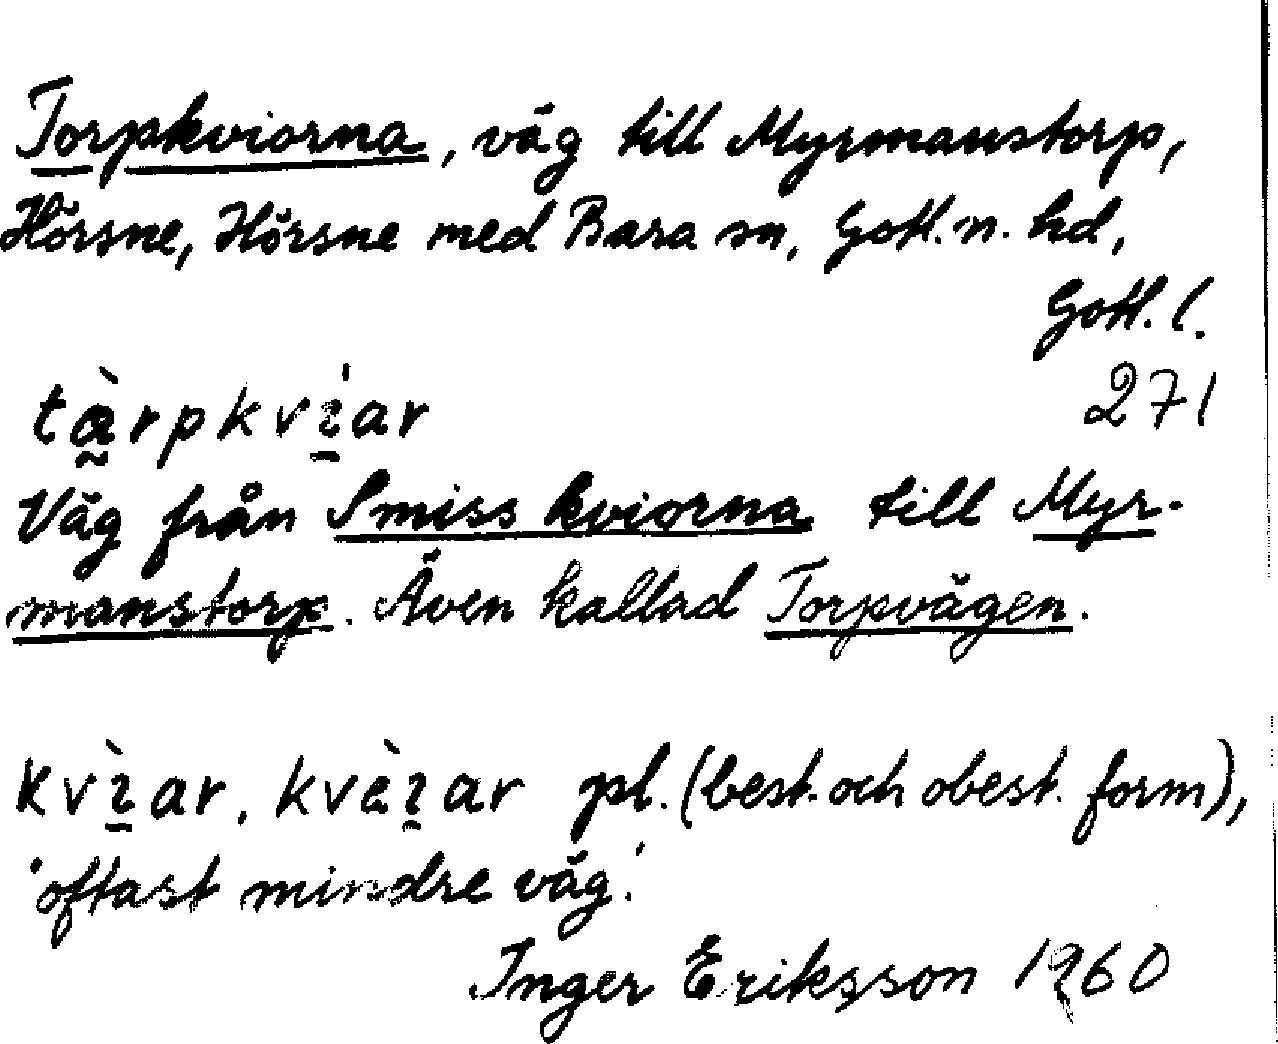 Torpkviorna, väg till Myrmanstorp,
Hörsne, Hörsne med Bara sn, Gotl. n. hd,
Gotl. l.
271
tàrpkvíar
Väg från Smisskviorna till Myr-
manstorp. Även kallad Torpvägen.
kvìar, kvèıar pl. (best. och obest. form),
'oftast mindre väg.'
Inger Eriksson 1960